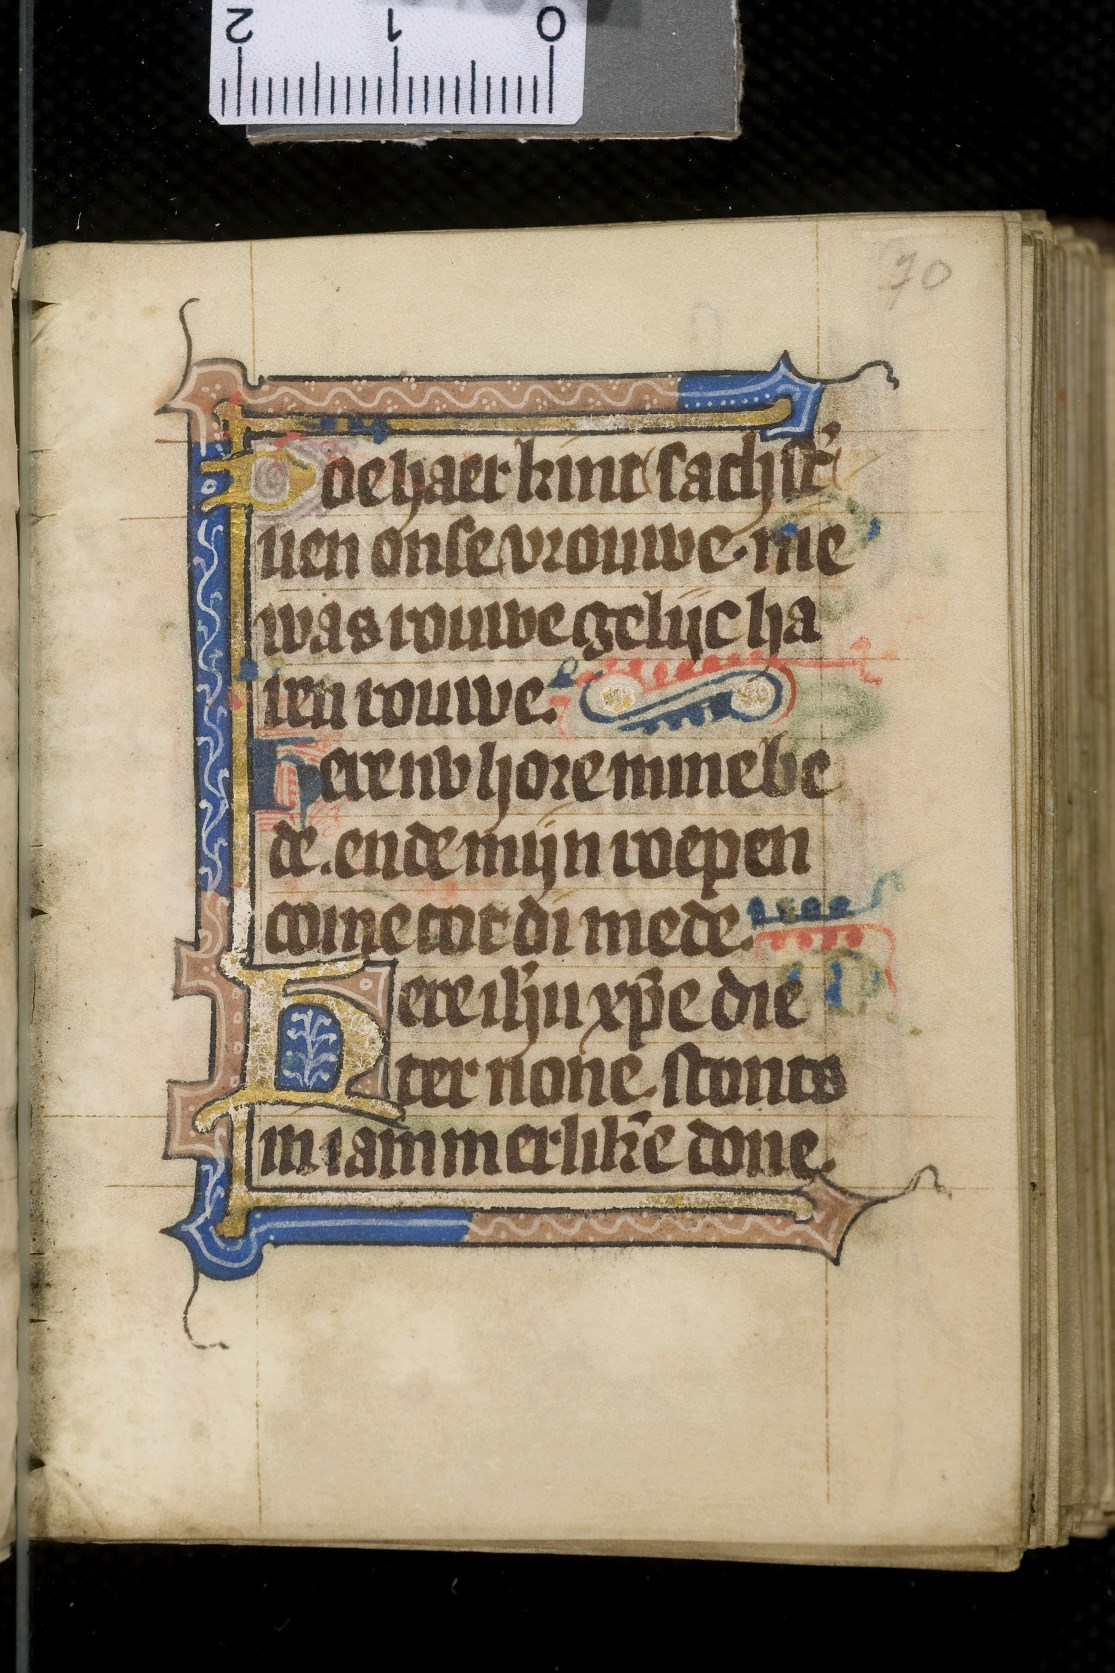 2 1 0
70
Doe haer kint sach st̾
uen onse vrouwe. nie
was rouwe gelijc ha
ren rouwe.
Here nv hore mine be
de. ende mijn roepen
come tot di mede.
Here ih̄u xp̄e die
ter none stonts
in iammerlik̄e done.